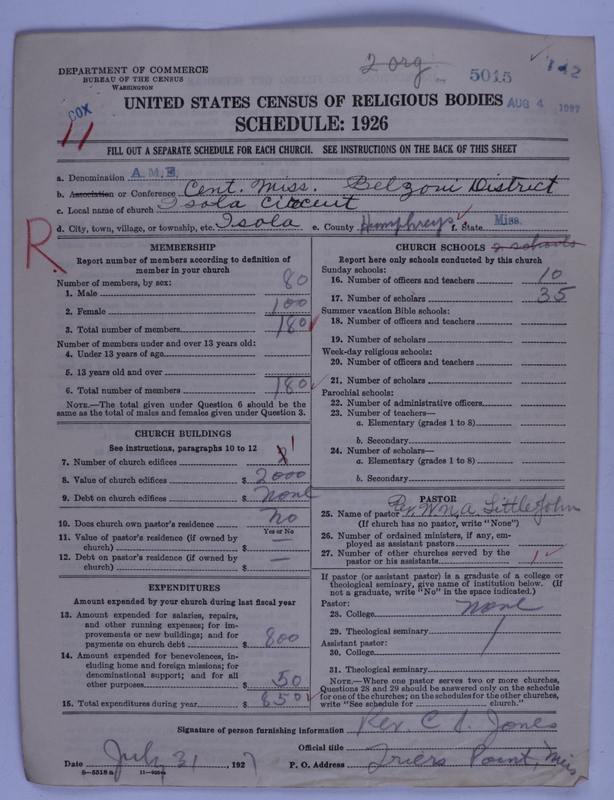 2 org.
5015
142
DEPARTMENT OF COMMERCE
BUREAU OF THE CENSUS
WASHINGTON
COX
11
UNITED STATES CENSUS OF RELIGIOUS BODIES AUG 4 1927
SCHEDULE: 1926
FILL OUT A SEPARATE SCHEDULE FOR EACH CHURCH. SEE INSTRUCTIONS ON THE BACK OF THIS SHEET
a. Denomination A.M.E.
b. Association or Conference Cent. Miss. Belzoni District
c. Local name of church Isola Circuit
d. City, town, village, or township, etc. Isola e. County Humphreys f. State Miss.
R.
MEMBERSHIP
Report number of members according to definition of
member in your church
Number of members, by sex:
1. Male 80
2. Female 100
3. Total number of members 180
Number of members under and over 13 years old:
4. Under 13 years of age
5. 13 years old and over
6. Total number of members 180
NOTE.—The total given under Question 6 should be the
same as the total of males and females given under Question 3.
CHURCH BUILDINGS
See instructions, paragraphs 10 to 12
7. Number of church edifices 1
8. Value of church edifices $ 2000
9. Debt on church edifices $ none
10. Does church own pastor's residence no
Yes or No
11. Value of pastor's residence (if owned by
church) $ —
12. Debt on pastor's residence (if owned by
church) $ —
EXPENDITURES
Amount expended by your church during last fiscal year
13. Amount expended for salaries, repairs,
and other running expenses; for im-
provements or new buildings; and for
payments on church debt $ 800
14. Amount expended for benevolences, in-
cluding home and foreign missions; for
denominational support; and for all
other purposes $ 50
15. Total expenditures during year $ 850
CHURCH SCHOOLS 2 schools
Report here only schools conducted by this church
Sunday schools:
16. Number of officers and teachers 10
17. Number of scholars 35
Summer vacation Bible schools:
18. Number of officers and teachers
19. Number of scholars
Week-day religious schools:
20. Number of officers and teachers
21. Number of scholars
Parochial schools:
22. Number of administrative officers
23. Number of teachers—
a. Elementary (grades 1 to 8)
b. Secondary
24. Number of scholars—
a. Elementary (grades 1 to 8)
b. Secondary
PASTOR
25. Name of pastor Rev. Wm. A. Little John
(If church has no pastor, write "None")
26. Number of ordained ministers, if any, em-
ployed as assistant pastors
27. Number of other churches served by the
pastor or his assistants 1
If pastor (or assistant pastor) is a graduate of a college or
theological seminary, give name of institution below. (If
not a graduate, write "No" in the space indicated.)
Pastor:
28. College none
29. Theological seminary
Assistant pastor:
30. College
31. Theological seminary
NOTE.—Where one pastor serves two or more churches,
Questions 28 and 29 should be answered only on the schedule
for one of the churches; on the schedules for the other churches,
write "See schedule for church."
Signature of person furnishing information Rev. C. Jones
Official title
Date July 31, 1927 P. O. Address Friers Point, Miss
8-5518 a